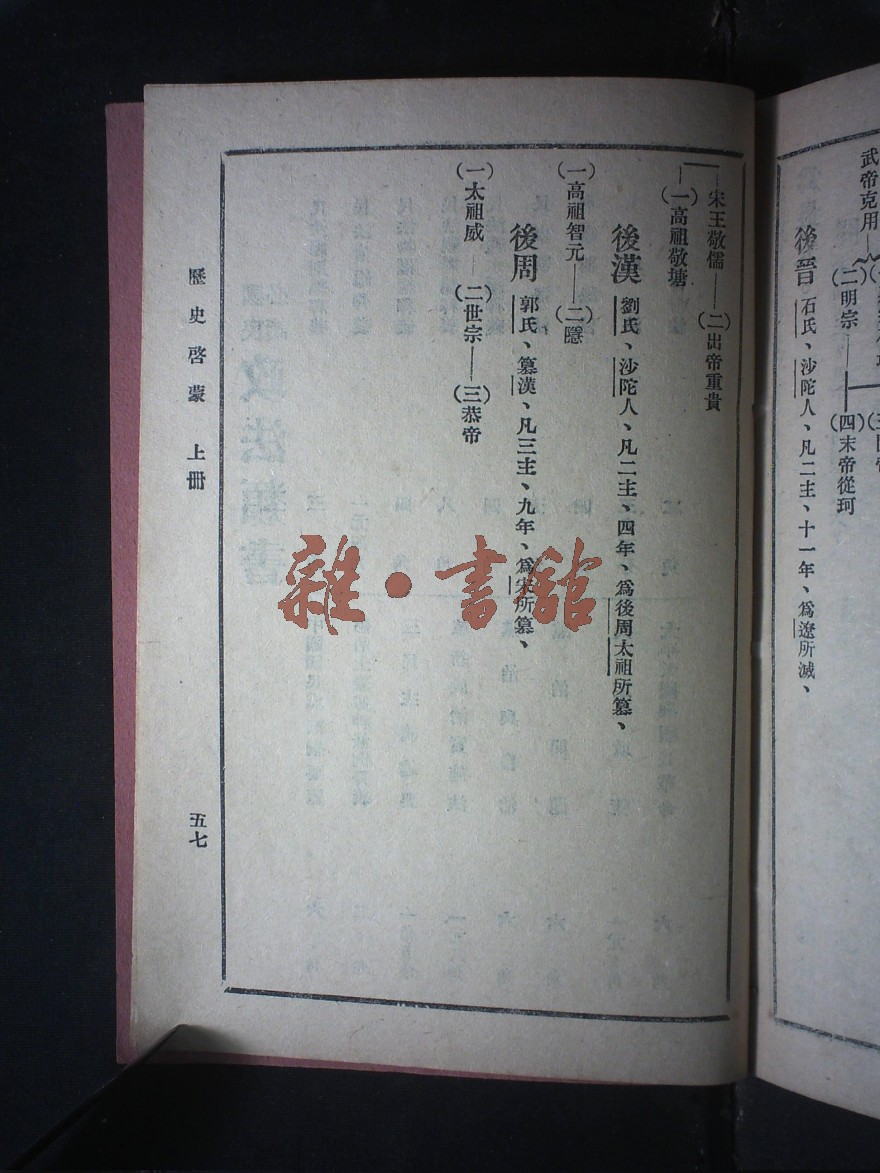 武帝克用
(二)明宗——(四)末帝從珂
後晉 石氏、沙陀人、凡二主、十一年、爲遼所滅、
宋王敬儒——(二)出帝重貴
(一)高祖敬塘
後漢 劉氏、沙陀人、凡二主、四年、爲後周太祖所篡、
(一)高祖智元——(二)隱
後周 郭氏、篡漢、凡三主、九年、爲宋所篡、
(一)太祖威——(二)世宗——(三)恭帝
歷史啓蒙 上冊
五七
雜·書館